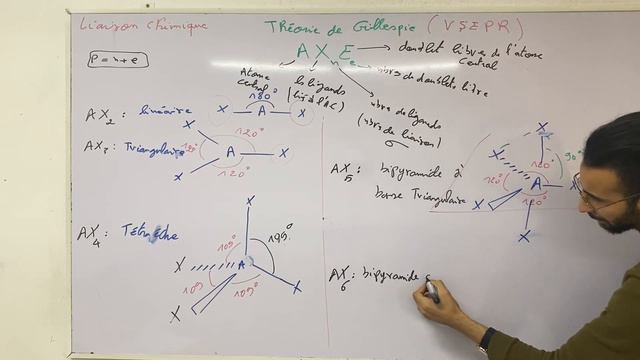 Liaison chimique
Théorie de Gillespie (VSEPR)
P = n + e
A X n E e
doublet libre de l'atome
central
nbre de doublets libre
Atome
central
les ligands
(lié à l'AC)
nbre de ligands
(nbre de liaison)
AX2 : linéaire
180°
X A X
AX3 : Triangulaire
X
120°
120°
120°
A X
X
AX4 : Tétraèdre
X
109°
109°
109°
109°
X A X
X
AX5 : bipyramide à
base Triangulaire
X
X
90°
120°
120°
120°
A X
X
X
AX6 : bipyramide